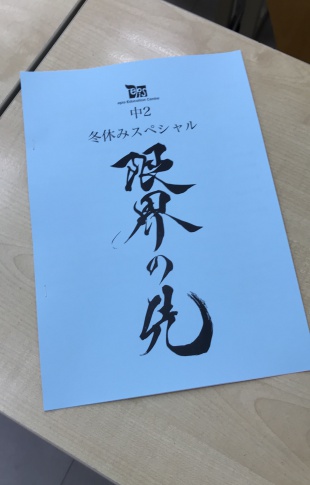 中2
冬休みスペシャル
限界の先